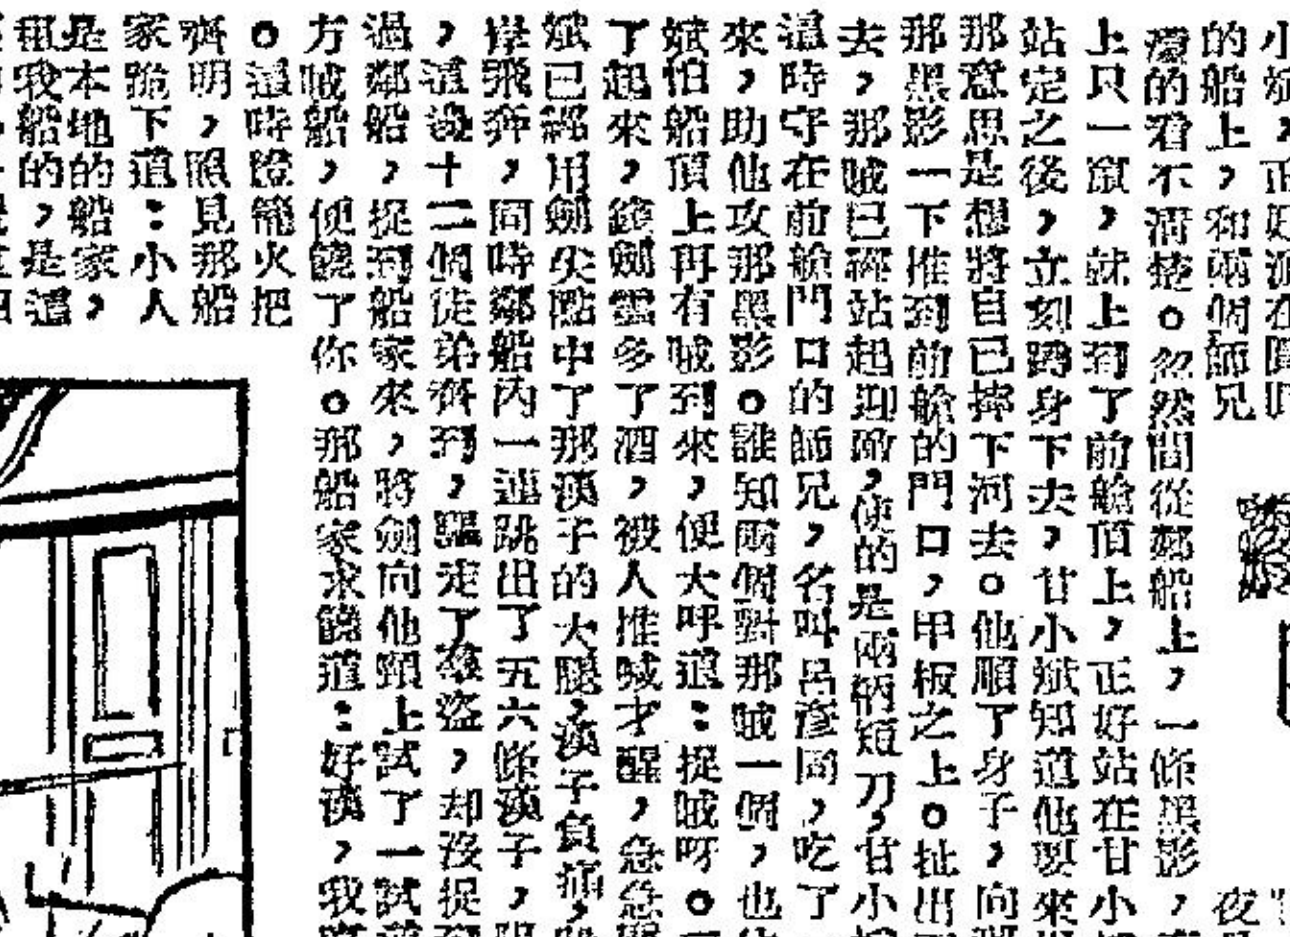 小斌，正好
的船上，和兩個師兄
的看不清楚。忽然間從鄰船上，一條黑影，
上只一竄，就上到了前艙頂上，正好站在甘小
站定之後，立刻蹲身下去，甘小斌知道他要來
那意思是想將自己摔下河去。他順了身子，向
那黑影一下推到前艙的門口，甲板之上。扯出
去，那賊已經站起迎敵，使的是兩柄短刀，甘小
這時守在前艙門口的師兄，名叫呂彥同，吃了
來，助他攻那黑影。誰知兩個對那賊一個，也
斌怕船頂上再有賊到來，便大呼道：捉賊呀。
了起來，鐵劍雲多了酒，被人推喊才醒，急急
斌已經用劍尖點中了那漢子的大腿，漢子負痛，
岸飛奔，同時鄰船內一連跳出了五六條漢子，
，這幾十二個徒弟齊到，驅走了群盜，却沒捉
過鄰船，捉到船家來，將劍向他頸上試了一試
方賊船，便饒了你。那船家求饒道：好漢，我
。這時燈籠火把
齊明，照見那船
家跪下道：小人
是本地的船家，
租我船的，是這
夜